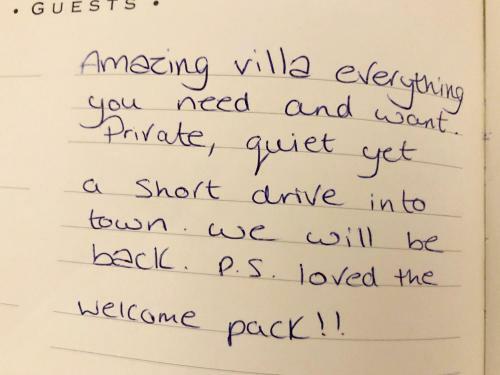 • GUESTS •
Amazing villa everything
you need and want.
Private, quiet yet
a short drive into
town. we will be
back. P.S. loved the
welcome pack!!